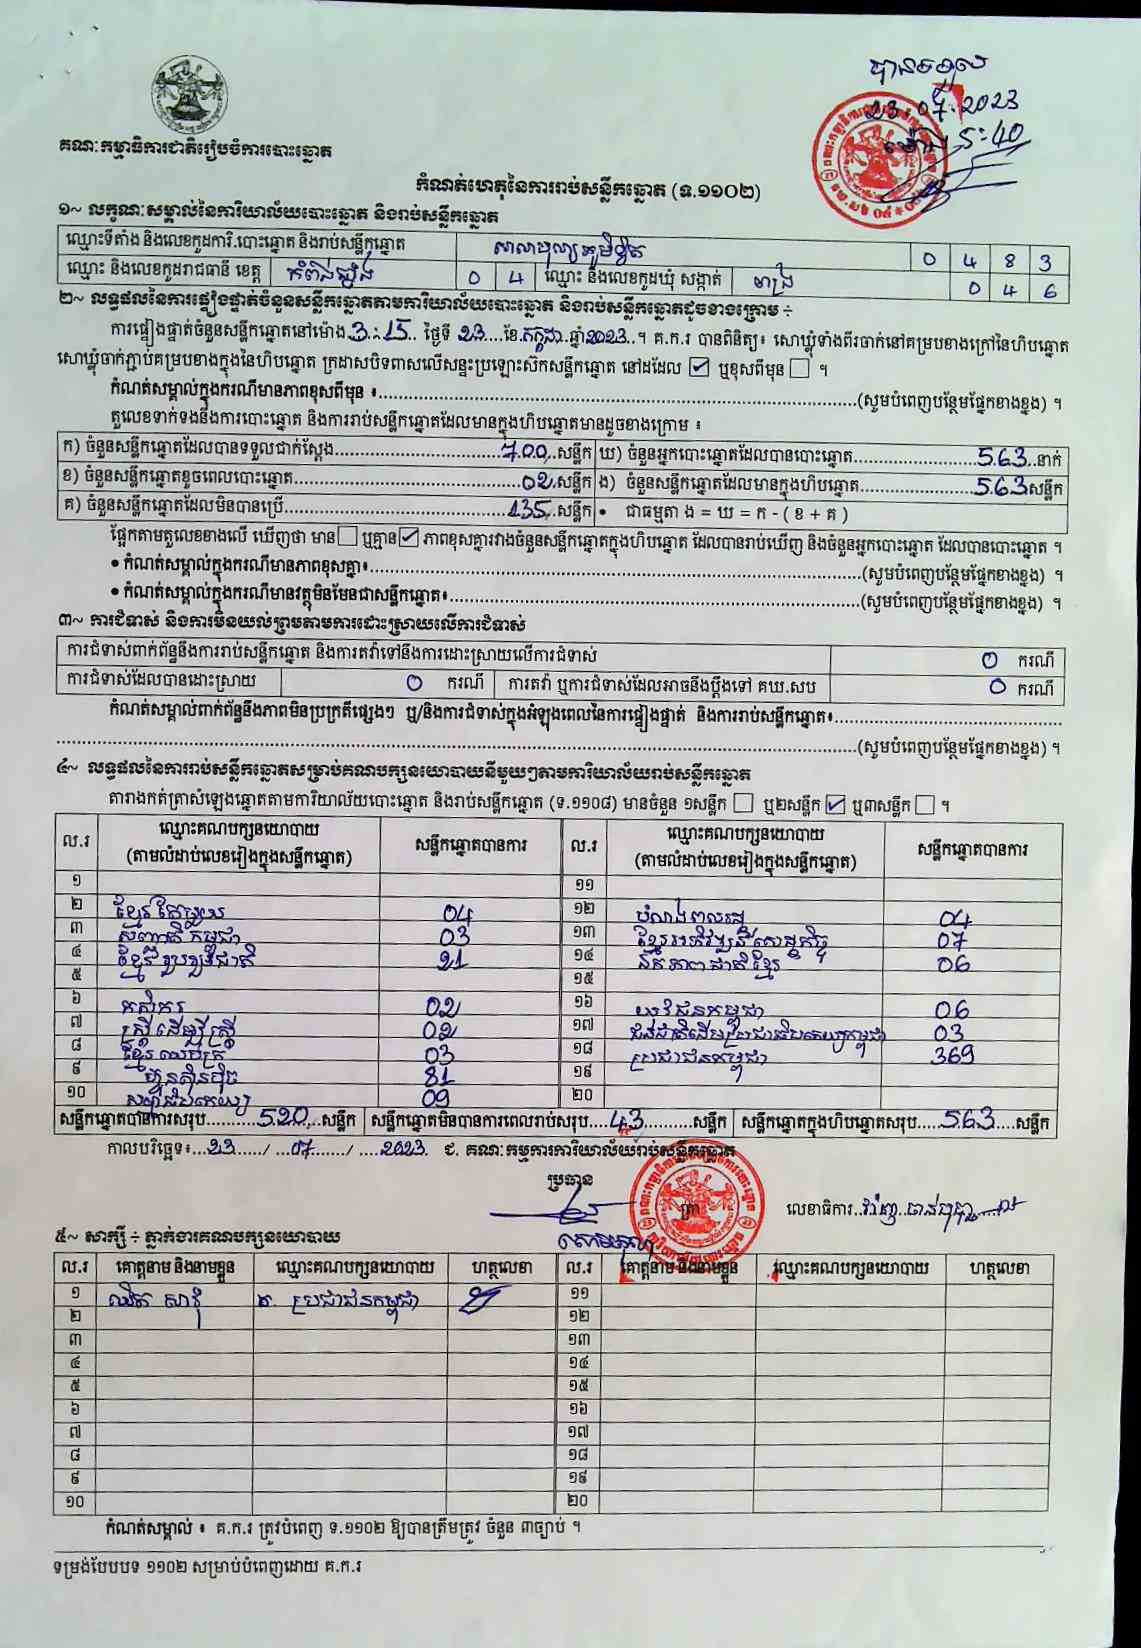 បានទទួល
23.07.2023
ម៉ោង 5:40
គណៈកម្មាធិការជាតិរៀបចំការបោះឆ្នោត
កំណត់ហេតុនៃការរាប់សន្លឹកឆ្នោត (ទ.១១០២)
១~ លក្ខណៈសម្គាល់នៃការិយាល័យបោះឆ្នោត និងរាប់សន្លឹកឆ្នោត
ឈ្មោះទីតាំង និងលេខកូដការិ.បោះឆ្នោត និងរាប់សន្លឹកឆ្នោត 0 4 8 3
ឈ្មោះ និងលេខកូដរាជធានី ខេត្ត កំពង់ឆ្នាំង 0 4 ឈ្មោះ និងលេខកូដឃុំ សង្កាត់ 0 4 6
២~ លទ្ធផលនៃការផ្ទៀងផ្ទាត់ចំនួនសន្លឹកឆ្នោតតាមការិយាល័យបោះឆ្នោត និងរាប់សន្លឹកឆ្នោតដូចខាងក្រោម ÷
ការផ្ទៀងផ្ទាត់ចំនួនសន្លឹកឆ្នោតនៅម៉ោង 3:15 ថ្ងៃទី 23 ខែ កក្កដា ឆ្នាំ 2023 ។ គ.ក.រ បានពិនិត្យ៖ សោឃ្លុំទាំងពីរចាក់នៅគម្របខាងក្រៅនៃហិបឆ្នោត
សោឃ្លុំចាក់ភ្ជាប់គម្របខាងក្នុងនៃហិបឆ្នោត ក្រដាសបិទពាសលើសន្ទះប្រឡោះស៊កសន្លឹកឆ្នោត នៅដដែល ☑ ឬខុសពីមុន ☐ ។
កំណត់សម្គាល់ក្នុងករណីមានភាពខុសពីមុន ៖ (សូមបំពេញបន្ថែមផ្នែកខាងខ្នង) ។
តួលេខទាក់ទងនឹងការបោះឆ្នោត និងការរាប់សន្លឹកឆ្នោតដែលមានក្នុងហិបឆ្នោតមានដូចខាងក្រោម ៖
ក) ចំនួនសន្លឹកឆ្នោតដែលបានទទួលជាក់ស្តែង 700 សន្លឹក ឃ) ចំនួនអ្នកបោះឆ្នោតដែលបានបោះឆ្នោត 563 នាក់
ខ) ចំនួនសន្លឹកឆ្នោតខូចពេលបោះឆ្នោត 02 សន្លឹក ង) ចំនួនសន្លឹកឆ្នោតដែលមានក្នុងហិបឆ្នោត 563 សន្លឹក
គ) ចំនួនសន្លឹកឆ្នោតដែលមិនបានប្រើ 135 សន្លឹក • ជាធម្មតា ង = ឃ = ក - ( ខ + គ )
ផ្អែកតាមតួលេខខាងលើ ឃើញថា មាន ☐ ឬគ្មាន ☑ ភាពខុសគ្នារវាងចំនួនសន្លឹកឆ្នោតក្នុងហិបឆ្នោត ដែលបានរាប់ឃើញ និងចំនួនអ្នកបោះឆ្នោត ដែលបានបោះឆ្នោត ។
• កំណត់សម្គាល់ក្នុងករណីមានភាពខុសគ្នា៖ (សូមបំពេញបន្ថែមផ្នែកខាងខ្នង) ។
• កំណត់សម្គាល់ក្នុងករណីមានវត្ថុមិនមែនជាសន្លឹកឆ្នោត៖ (សូមបំពេញបន្ថែមផ្នែកខាងខ្នង) ។
៣~ ការជំទាស់ និងការមិនយល់ព្រមតាមការដោះស្រាយលើការជំទាស់
ការជំទាស់ពាក់ព័ន្ធនឹងការរាប់សន្លឹកឆ្នោត និងការតវ៉ាទៅនឹងការដោះស្រាយលើការជំទាស់ 0 ករណី
ការជំទាស់ដែលបានដោះស្រាយ 0 ករណី ការតវ៉ា ឬការជំទាស់ដែលអាចនឹងប្តឹងទៅ គឃ.សប 0 ករណី
កំណត់សម្គាល់ពាក់ព័ន្ធនឹងភាពមិនប្រក្រតីផ្សេងៗ ឬ/និងការជំទាស់ក្នុងអំឡុងពេលនៃការផ្ទៀងផ្ទាត់ និងការរាប់សន្លឹកឆ្នោត៖
(សូមបំពេញបន្ថែមផ្នែកខាងខ្នង) ។
៤~ លទ្ធផលនៃការរាប់សន្លឹកឆ្នោតសម្រាប់គណបក្សនយោបាយនីមួយៗតាមការិយាល័យរាប់សន្លឹកឆ្នោត
តារាងកត់ត្រាសំឡេងឆ្នោតតាមការិយាល័យបោះឆ្នោត និងរាប់សន្លឹកឆ្នោត (ទ.១១០៨) មានចំនួន ១សន្លឹក ☐ ឬ២សន្លឹក ☑ ឬ៣សន្លឹក ☐ ។
ល.រ ឈ្មោះគណបក្សនយោបាយ (តាមលំដាប់លេខរៀងក្នុងសន្លឹកឆ្នោត) សន្លឹកឆ្នោតបានការ ល.រ ឈ្មោះគណបក្សនយោបាយ (តាមលំដាប់លេខរៀងក្នុងសន្លឹកឆ្នោត) សន្លឹកឆ្នោតបានការ
១ ១១
២ ខ្មែរតែមួយ 04 ១២ 04
៣ សញ្ជាតិកម្ពុជា 03 ១៣ ខ្មែរអភិវឌ្ឍន៍សេដ្ឋកិច្ច 07
៤ ខ្មែររួបរួមជាតិ 21 ១៤ ឯកភាពជាតិខ្មែរ 06
៥ ១៥
៦ កសិករ 02 ១៦ យុវជនកម្ពុជា 06
៧ ស្ត្រីដើម្បីស្ត្រី 02 ១៧ ជនជាតិដើមប្រជាធិបតេយ្យកម្ពុជា 03
៨ ខ្មែរឈប់ក្រ 03 ១៨ ប្រជាជនកម្ពុជា 369
៩ ហ៊្វុនស៊ិនប៉ិច 81 ១៩
១០ 09 ២០
សន្លឹកឆ្នោតបានការសរុប 520 សន្លឹក សន្លឹកឆ្នោតមិនបានការពេលរាប់សរុប 43 សន្លឹក សន្លឹកឆ្នោតក្នុងហិបឆ្នោតសរុប 563 សន្លឹក
កាលបរិច្ឆេទ៖ 23 / 07 / 2023 ជ. គណៈកម្មការការិយាល័យរាប់សន្លឹកឆ្នោត
ប្រធាន
ត្រា លេខាធិការ
៥~ សាក្សី ÷ ភ្នាក់ងារគណបក្សនយោបាយ
ល.រ គោត្តនាម និងនាមខ្លួន ឈ្មោះគណបក្សនយោបាយ ហត្ថលេខា ល.រ គោត្តនាម និងនាមខ្លួន ឈ្មោះគណបក្សនយោបាយ ហត្ថលេខា
១ គ. ប្រជាជនកម្ពុជា ១១
២ ១២
៣ ១៣
៤ ១៤
៥ ១៥
៦ ១៦
៧ ១៧
៨ ១៨
៩ ១៩
១០ ២០
កំណត់សម្គាល់ ៖ គ.ក.រ ត្រូវបំពេញ ទ.១១០២ ឱ្យបានត្រឹមត្រូវ ចំនួន ៣ច្បាប់ ។
ទម្រង់បែបបទ ១១០២ សម្រាប់បំពេញដោយ គ.ក.រ